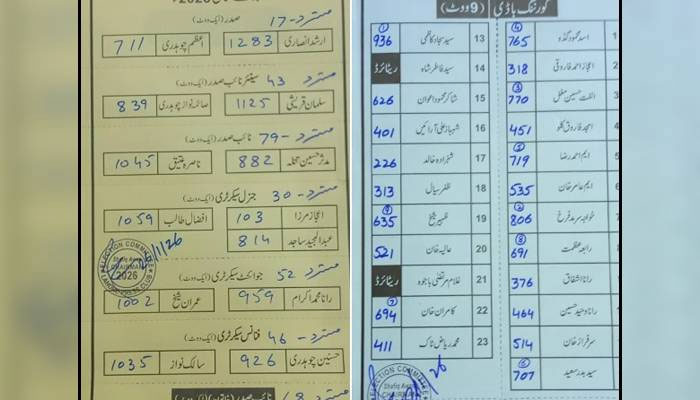 2026
صدر (ایک ووٹ) مسترد - 17
ارشد انصاری 1283 اعظم چوہدری 711
سینئر نائب صدر (ایک ووٹ) مسترد 43
سلمان قریشی 1125 صائمہ نواز چوہدری 839
نائب صدر (ایک ووٹ) مسترد - 79
مدثر حسین 882 ناصرہ عتیق 1045
جنرل سیکرٹری (ایک ووٹ) مسترد - 30
اعجاز مرزا 103 افضال طالب 1059
عبدالمجید ساجد 814
جوائنٹ سیکرٹری (ایک ووٹ) مسترد 52
رانا محمد اکرام 959 عمران شیخ 1002
فنانس سیکرٹری (ایک ووٹ) مسترد - 46
حسنین چوہدری 926 سالک نواز 1035
نائب صدر (خاتون) (ایک ووٹ)
ELECTION COMMITTEE
CHAIRMAN
2026
LAHORE PRESS CLUB
گورننگ باڈی (9 ووٹ)
1 اسد محمود گڈو 765 ④
اعجاز احمد فاروقی 318
3 الفت حسین مغل 770 ③
امجد فاروق کلو 451
5 ایم احمد رضا 719
ایم عامر خان 535
خواجہ سرمد فرخ 806 ②
رابعہ عظمت 691 ⑧
رانا اشفاق 376
رانا وحید حسین 464
سرفراز خان 514
سید بدر سعید 707
13 سید سجاد کاظمی 936 ①
14 سید فاطر شاہ ریٹائرڈ
15 شاکر محمود اعوان 626
16 شہباز علی آرائیں 401
17 شہزادہ خالد 226
18 ظفر سیال 313
19 ظہیر شیخ 635 ⑨
20 عالیہ خان 521
21 غلام مرتضیٰ باجوہ ریٹائرڈ
22 کامران خان 694 ⑦
23 محمد ریاض ٹاک 411
ELECTION COMMITTEE
CHAIRMAN